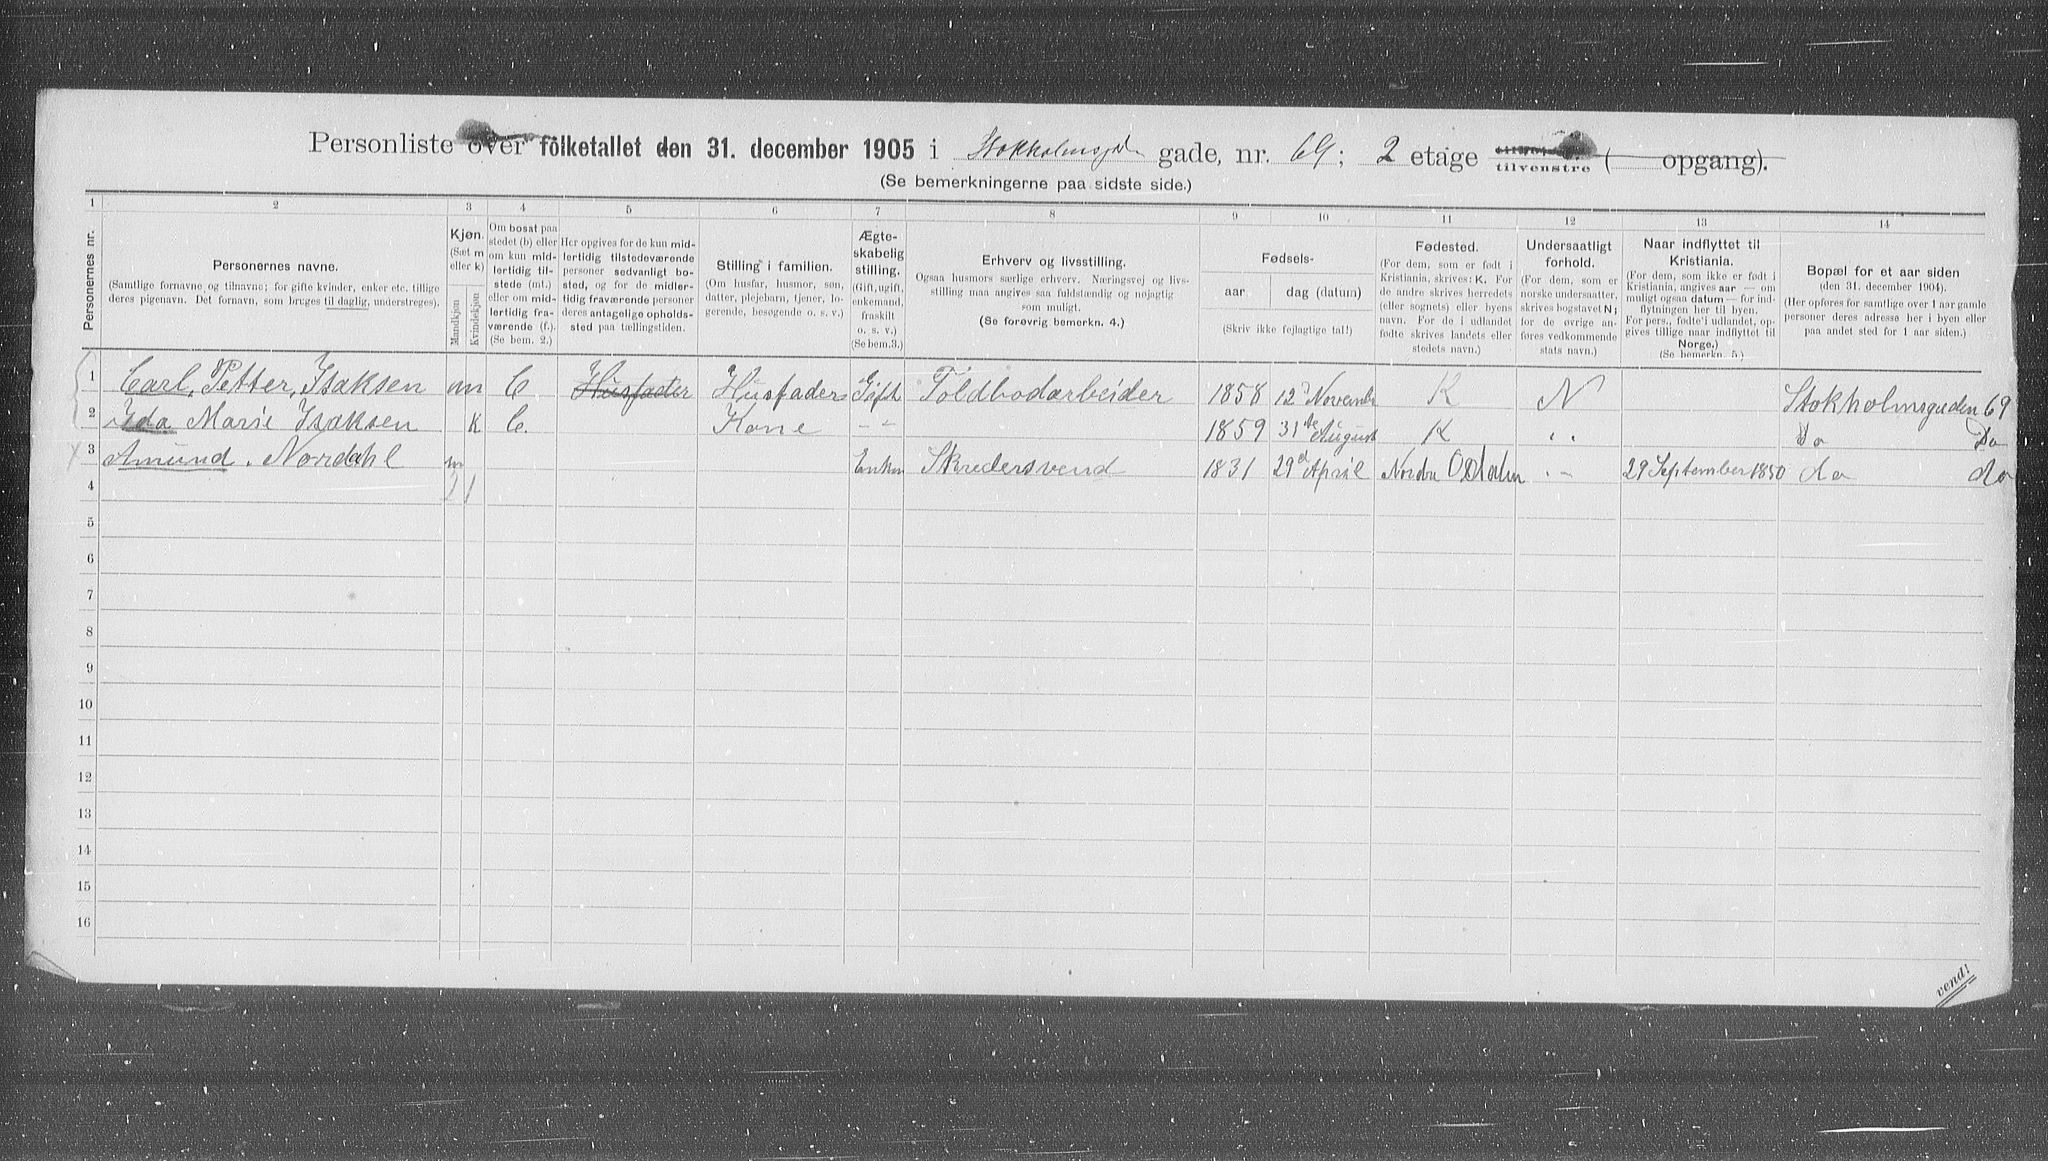 Personliste over folketallet den 31. december 1905 i Stokholmsgden gade, nr. 69; 2 etage tilvenstre ( opgang).
(Se bemerkningerne paa sidste side.)
1 2 3 4 5 6 7 8 9 10 11 12 13 14
Personernes nr.
Personernes navne.
(Samtlige fornavne og tilnavne; for gifte kvinder, enker etc. tillige deres pigenavn. Det fornavn, som bruges til daglig, understreges).
Kjøn.
(Sæt m eller k)
Mandkjøn
Kvindekjøn.
Om bosat paa stedet (b) eller om kun midlertidig tilstede (mt.) eller om midlertidig fraværende (f.). (Se bem. 2.)
Her opgives for de kun midlertidig tilstedeværende personer sedvanligt bosted, og for de midlertidig fraværende personer deres antagelige opholdssted paa tællingstiden.
Stilling i familien.
(Om husfar, husmor, søn, datter, plejebarn, tjener, logerende, besøgende o. s. v.)
Ægteskabelig stilling.
(Gift, ugift, enkemand, fraskilt o. s. v.)
(Se bem.3.)
Erhverv og livsstilling.
Ogsaa husmors særlige erhverv. Næringsvej og livsstilling maa angives saa fuldstændig og nøjagtig som muligt.
(Se forøvrig bemerkn. 4.)
Fødsels-
aar
dag (datum)
(Skriv ikke fejlagtige tal!)
Fødested.
(For dem, som er født i Kristiania, skrives: K. For de andre skrives herredets (eller sognets) eller byens navn. For de i udlandet fødte skrives landets eller stedets navn.)
Undersaatligt forhold.
(For dem, som er norske undersaatter, skrives bogstavet N; for de øvrige anføres vedkommende stats navn.)
Naar indflyttet til Kristiania.
(For dem, som ikke er født i Kristiania, angives aar — om muligt ogsaa datum — for indflytningen her til byen. For pers., fødte i udlandet, opgives tillige naar indflyttet til Norge.)
(Se bemerkn. 5.)
Bopæl for et aar siden
(den 31. december 1904).
(Her opføres for samtlige over 1 aar gamle personer deres adresse her i byen eller paa andet sted for 1 aar siden.)
1 Carl, Petter, Isaksen m Husfader Husfader Gift Toldbodarbeider 1858 12 November K N Stokholmsgaden 69
2 Ida Marie Isaksen K Kone -"- 1859 31te August K Do Do
3 Amund. Nordahl m Enkem Skredersvend 1831 29d April Nordre Odalen 29 September 1850 do do
4 2 1
5
6
7
8
9
10
11
12
13
14
15
16
vend!